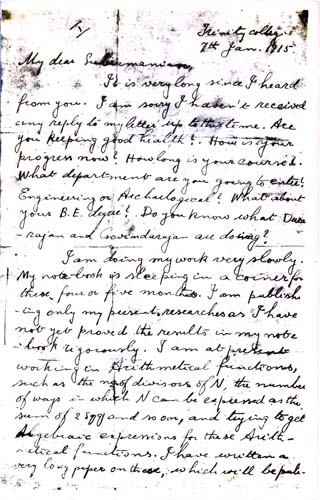 Trinity College
7th Jan. 1915
My dear Subramanian,
It is very long since I heard
from you. I am sorry I haven't received
any reply to my letter up to this time. Are
you keeping good health? How is your
progress now? How long is your course?
What department are you going to enter?
Engineering or Archaelogical? What about
your B.E. degree? Do you know what Durai
rajan and Govindarajan are doing?
I am doing my work very slowly.
My note-book is sleeping in a corner for
these four or five months. I am publish-
ing only my present researches as I have
not yet proved the results in my note
-book rigorously. I am at present
working in Arithmetical functions,
such as the no. of divisors of N, the number
of ways in which N can be expressed as the
sum of 2 sqq and so on, and trying to get
Algebraic expressions for these Arith-
metical functions. I have written a
very long paper on these, which will be pub-